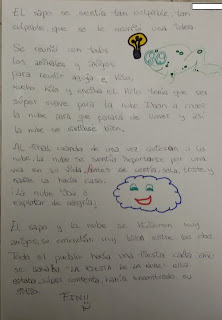 El sapo se sentía tan culpable, tan
culpable, que se le ocurrió una idea.
Se reunió con todos
los animales y amigos
para reunir aguja e hilo,
mucho hilo y encima el hilo tenía que ser
súper suave para la nube. Iban a coser
la nube para que parara de llover y así
la nube se sintiese bien.
Al final cuando de una vez cosieron a la
nube, la nube se sentía importante por una
vez en su vida. Antes se sentía sola, triste y
nadie la hacía caso.
¡La nube iba a
explotar de alegría!
El sapo y la nube se hicieron muy
amigos, se entendían muy bien entre los dos.
Todo el pueblo hacía una fiesta cada año
se llamaba "LA FIESTA DE LA NUBE" ella
estaba súper contenta, había encontrado su
FIN!!